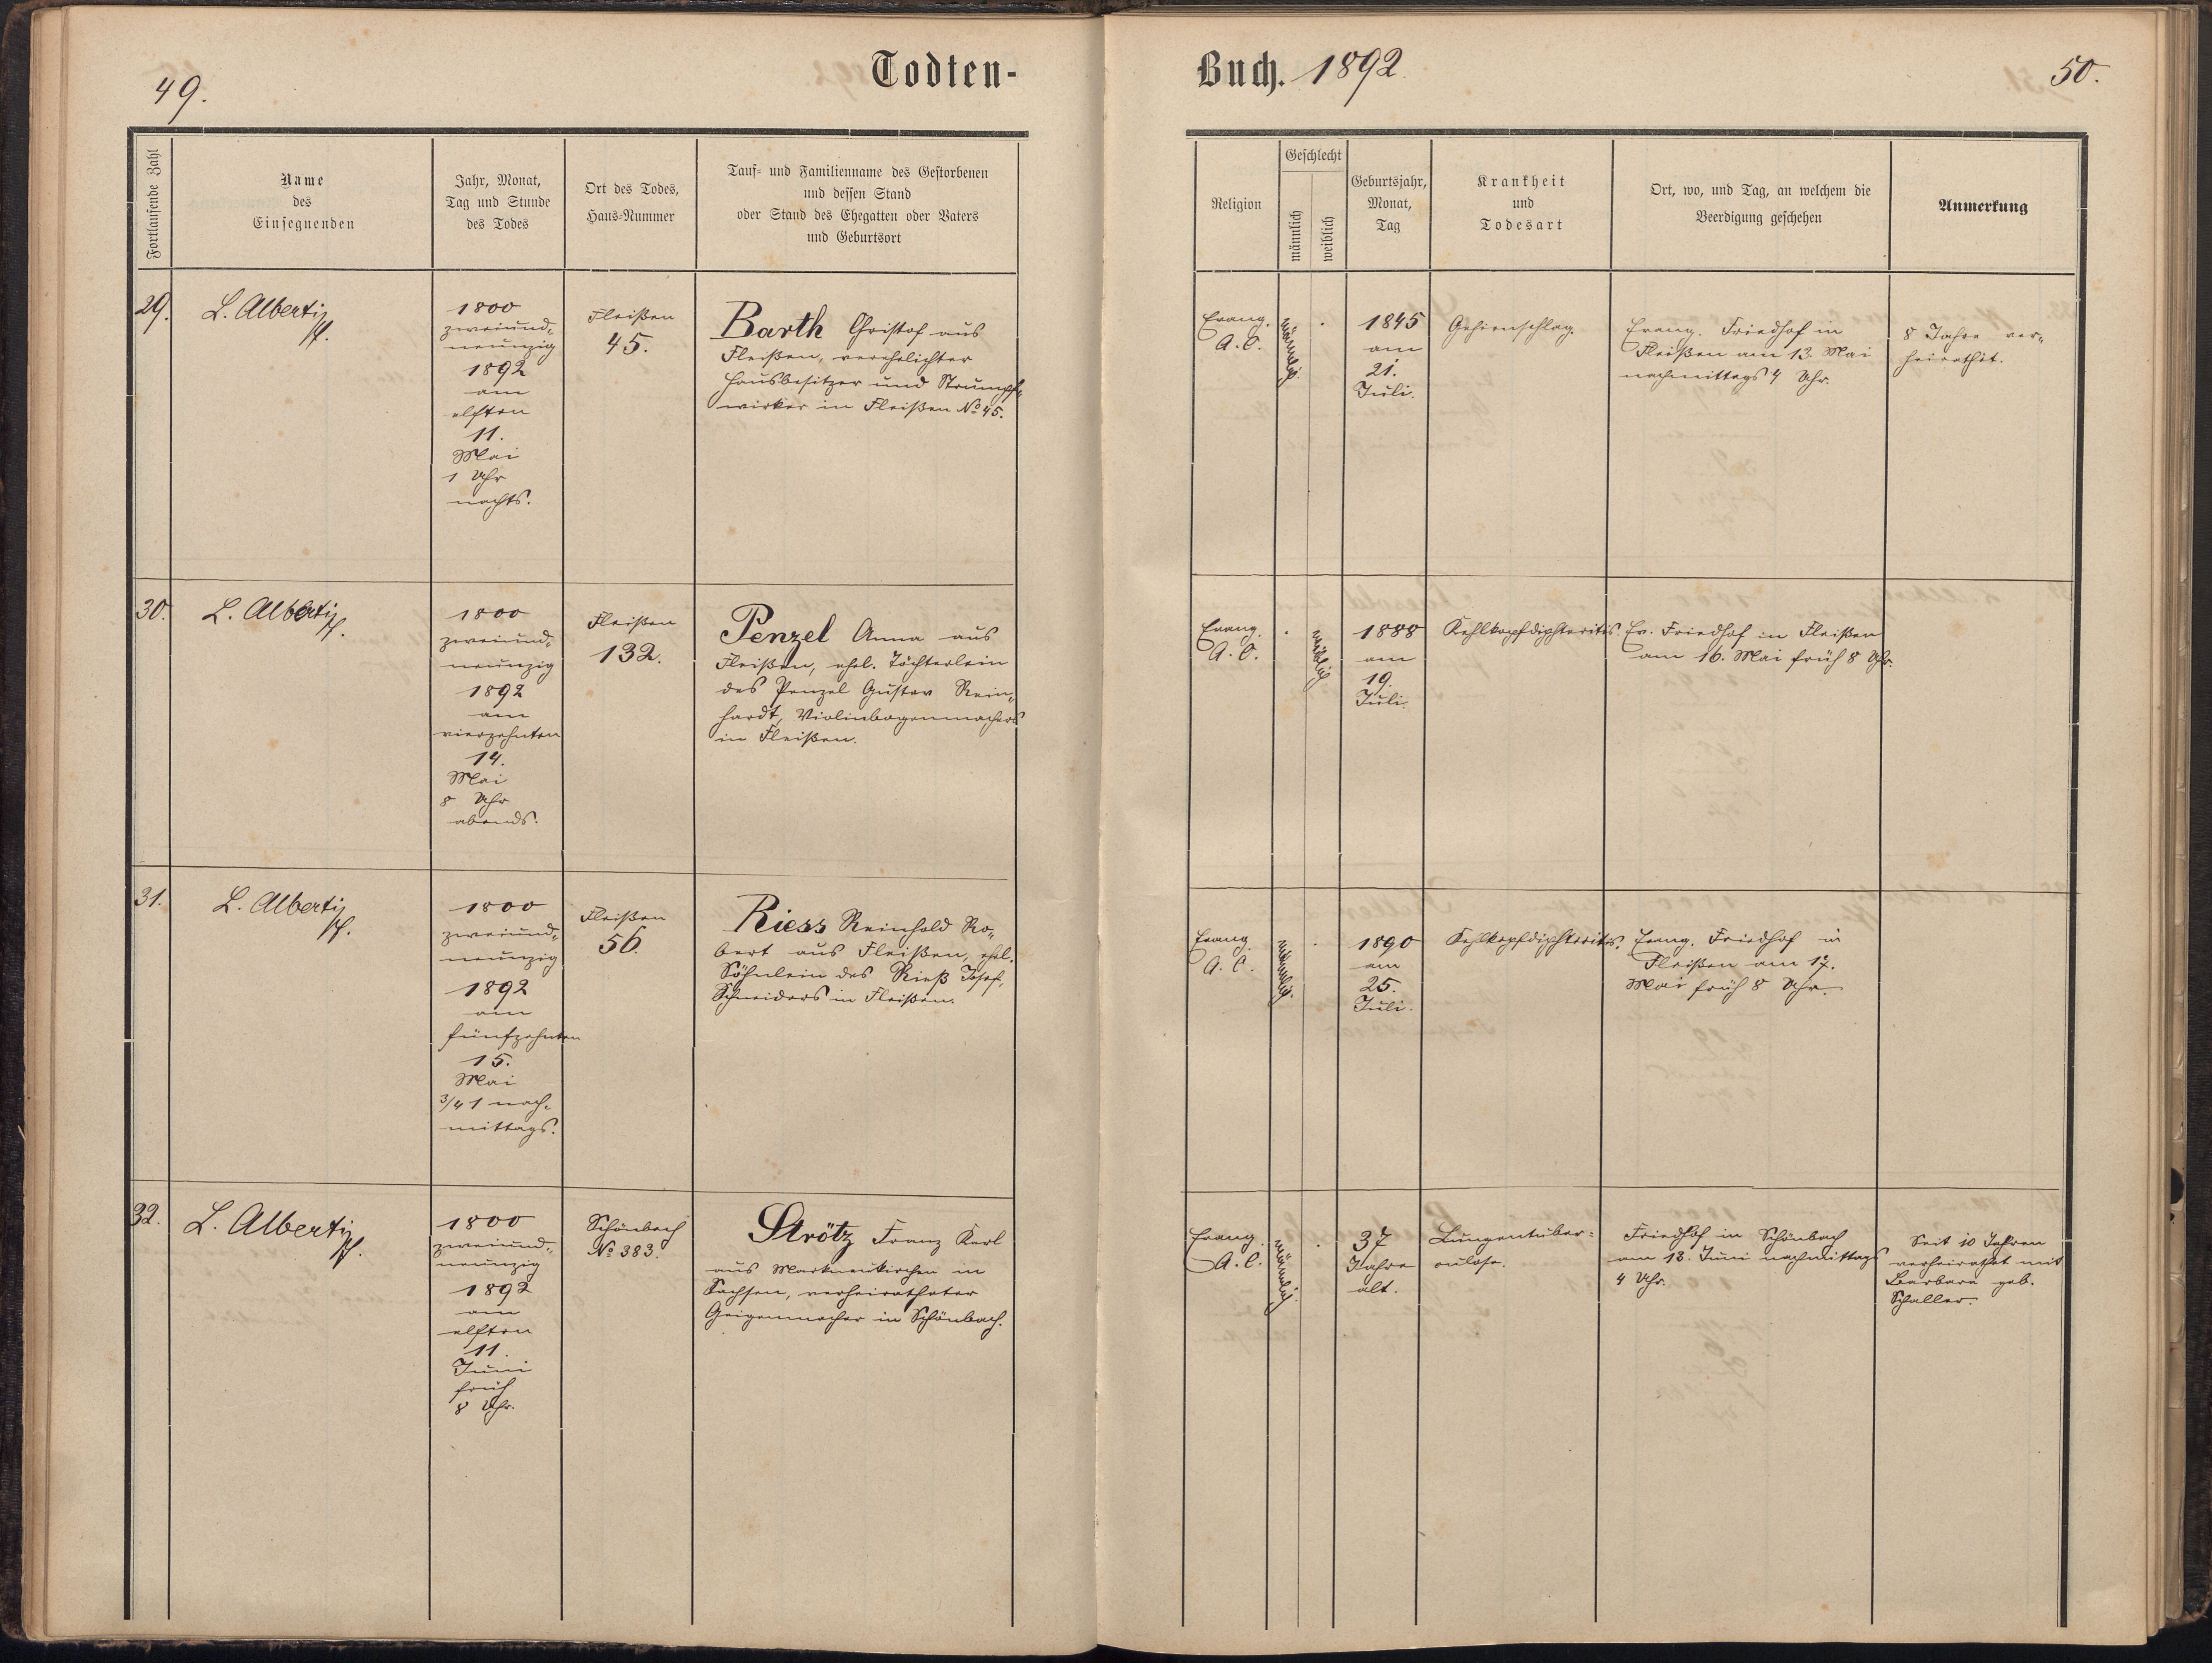 49.
Todten-
Fortlaufende Zahl
Name
des
Einsegnenden
Jahr, Monat,
Tag und Stunde
des Todes
Ort des Todes,
Haus-Nummer
Tauf- und Familienname des Gestorbenen
und dessen Stand
oder Stand des Ehegatten oder Vaters
und Geburtsort
29.
L. Alberti
Pf.
1800
zweiund-
neunzig
1892
am
elften
11.
Mai
1 Uhr
nachts.
Fleißen
45.
Barth Christof aus
Fleißen, verehelichter
Hausbesitzer und Strumpf-
wirker in Fleißen No 45.
30.
L. Alberti
Pf.
1800
zweiund-
neunzig
1892
am
vierzehnten
14.
Mai
8 Uhr
abends.
Fleißen
132.
Penzel Anna aus
Fleißen, ehel. Töchterlein
des Penzel Gustav Rein-
hardt, Violinbogenmachers
in Fleißen.
31.
L. Alberti
Pf.
1800
zweiund-
neunzig
1892
am
fünfzehnten
15.
Mai
3/4 1 nach-
mittags.
Fleißen
56.
Riess Reinhold Ro-
bert aus Fleißen, ehel.
Söhnlein des Rieß Josef,
Schneiders in Fleißen.
32.
L. Alberti
Pf.
1800
zweiund-
neunzig
1892
am
elften
11.
Juni
früh
8 Uhr.
Schönbach
No 383.
Strötz Franz Karl
aus Markneukirchen in
Sachsen, verheiratheter
Geigenmacher in Schönbach.
Buch. 1892.
50.
Religion
Geschlecht
männlich
weiblich
Geburtsjahr,
Monat,
Tag
Krankheit
und
Todesart
Ort, wo, und Tag, an welchem die
Beerdigung geschehen
Anmerkung
Evang.
A. C.
männlich.
1845
am
21.
Juli.
Gehirnschlag.
Evang. Friedhof in
Fleißen am 13. Mai
nachmittags 4 Uhr.
8 Jahre ver-
heirathet.
Evang.
A. C.
weiblich
1888
am
19.
Juli.
Kehlkopfdiphteritis.
Ev. Friedhof in Fleißen
am 16. Mai früh 8 Uhr.
Evang.
A. C.
männlich.
1890
am
25.
Juli.
Kehlkopfdiphteritis.
Evang. Friedhof in
Fleißen am 17.
Mai früh 8 Uhr.
Evang.
A. C.
männlich.
37
Jahre
alt.
Lungentuber-
culose.
Friedhof in Schönbach
am 13. Juni nachmittags
4 Uhr.
Seit 10 Jahren
verheirathet mit
Barbara geb.
Schaller.